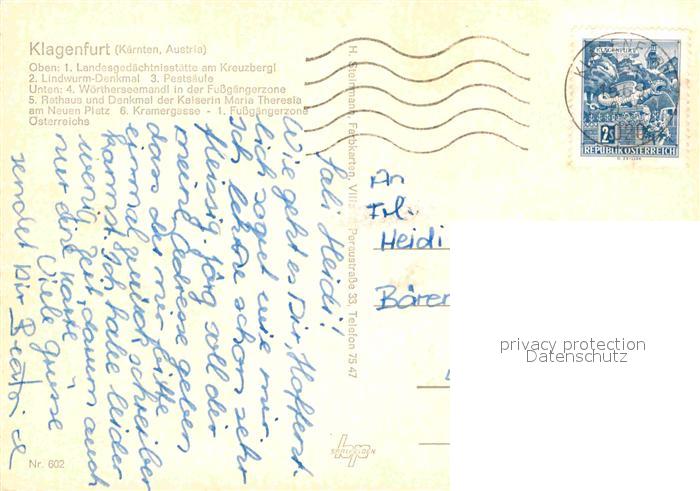 Klagenfurt (Kärnten, Austria)
Oben: 1. Landesgedächtnisstätte am Kreuzbergl
2. Lindwurm-Denkmal 3. Pestsäule
Unten: 4. Wörtherseemandl in der Fußgängerzone
5. Rathaus und Denkmal der Kaiserin Maria Theresia
am Neuen Platz 6. Kramergasse - 1. Fußgängerzone
Österreichs
Sali Heidi!
Wie geht es Dir, Hoffent-
lich sogut wie mir.
Ich lehre schon sehr
fleissig. Jörg soll dir
meine Adresse geben
dass du mir bitte
einmal zurück schreiben
kannst. Ich habe leider
wenig Zeit, darum auch
nur eine Karte
Viele Grüsse
sendet Dir
H. Steinmann, Farbkarten, Peraustraße 33, Telefon 75 47
An
Frl.
Heidi
Bären
KLAGENFURT
2 S
REPUBLIK ÖSTERREICH
privacy protection
Datenschutz
Nr. 602